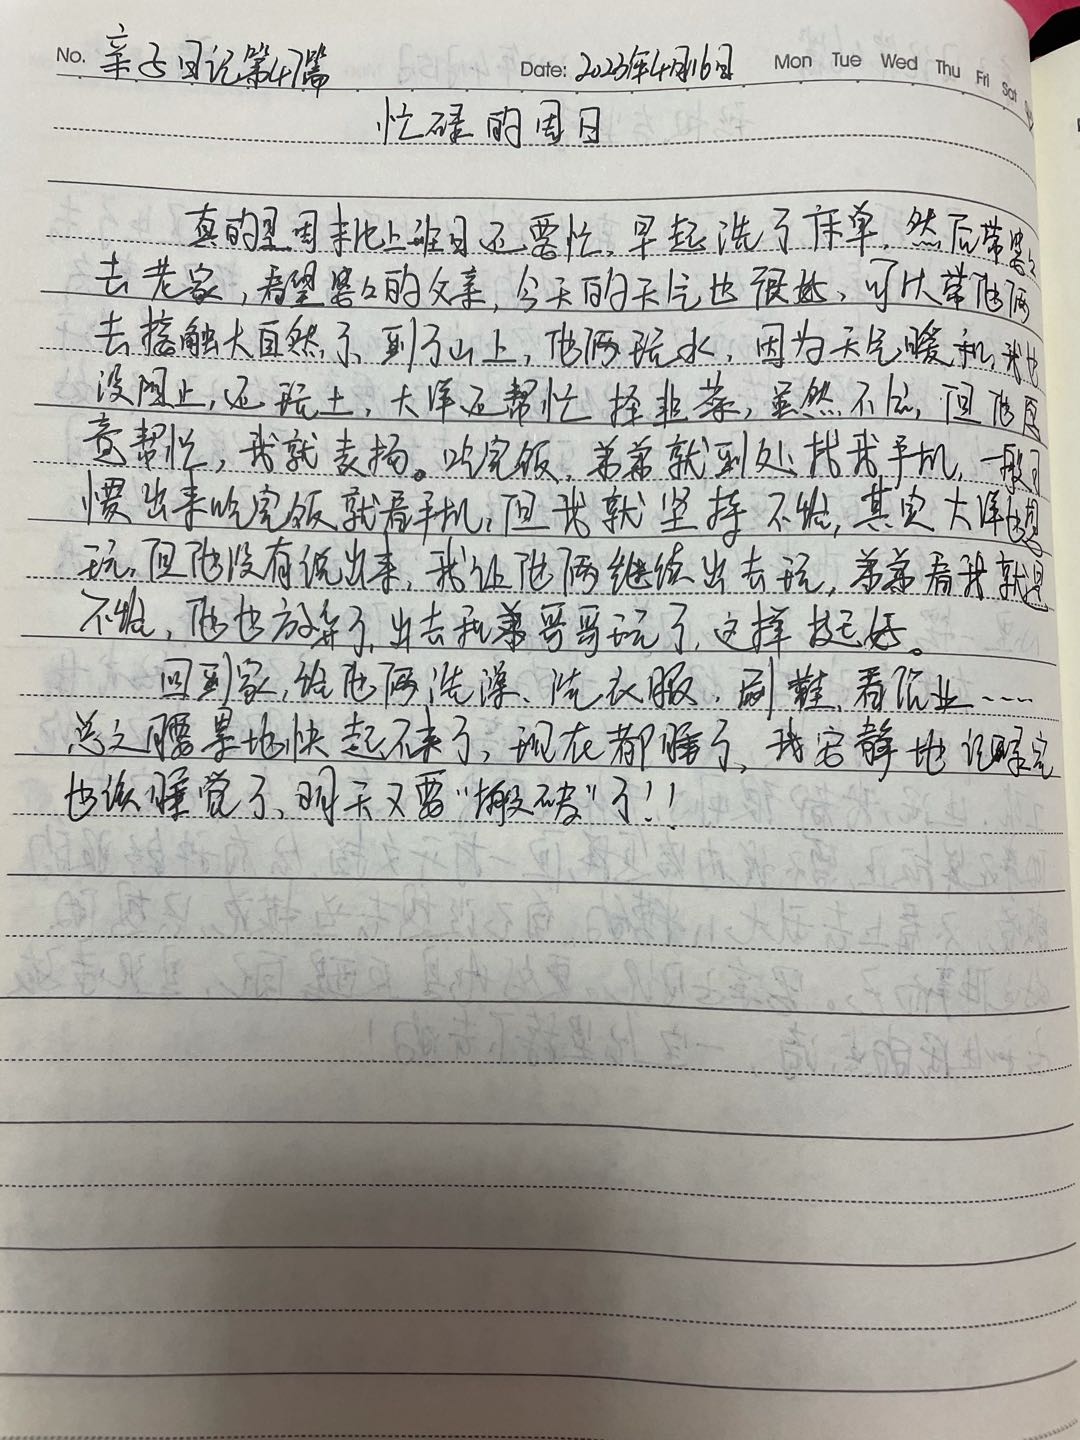 No. 亲子日记第47篇 Date: 2023年4月16日 Mon Tue Wed Thu Fri Sat
忙碌的周日
真的是周末比上班日还要忙,早起洗了床单,然后带
去老家,看望的父亲,今天的天气也很好,可以带他俩
去接触大自然了,到了山上,他俩玩水,因为天气暖和,我也
没阻止,还玩土,大洋还帮忙择韭菜,虽然不会,但他愿
意帮忙,我就表扬。吃完饭,弟弟就到处找我手机,一般习
惯出来吃完饭就看手机,但我就坚持不给,其实大洋也想
玩,但他没有说出来,我让他俩继续出去玩,弟弟看我就是
不给,他也放弃了,出去和哥哥玩了,这样挺好。
回到家,给他俩洗澡、洗衣服,刷鞋,看作业……
总之腰累地快起不来了,现在都睡了,我安静地记录完
也该睡觉了,明天又要"搬砖"了!!